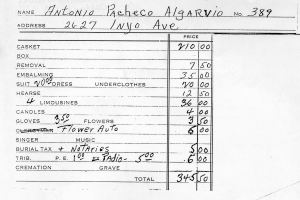 NAME Antonio Pacheco Algarvio No. 389
ADDRESS 2627 Inyo Ave
PRICE
CASKET 210 00
BOX
REMOVAL 7 50
EMBALMING 35 00
SUIT 20.00 DRESS UNDERCLOTHES 20 00
HEARSE 12 50
4 LIMOUSINES 36 00
CANDLES 4 00
GLOVES 3.50 FLOWERS 3 50
Flower Auto 6 00
SINGER MUSIC
BURIAL TAX + Notaries 5 00
TRIB. P. E. 1.00 Radio - 5.00 6 00
CREMATION GRAVE
TOTAL 345 50